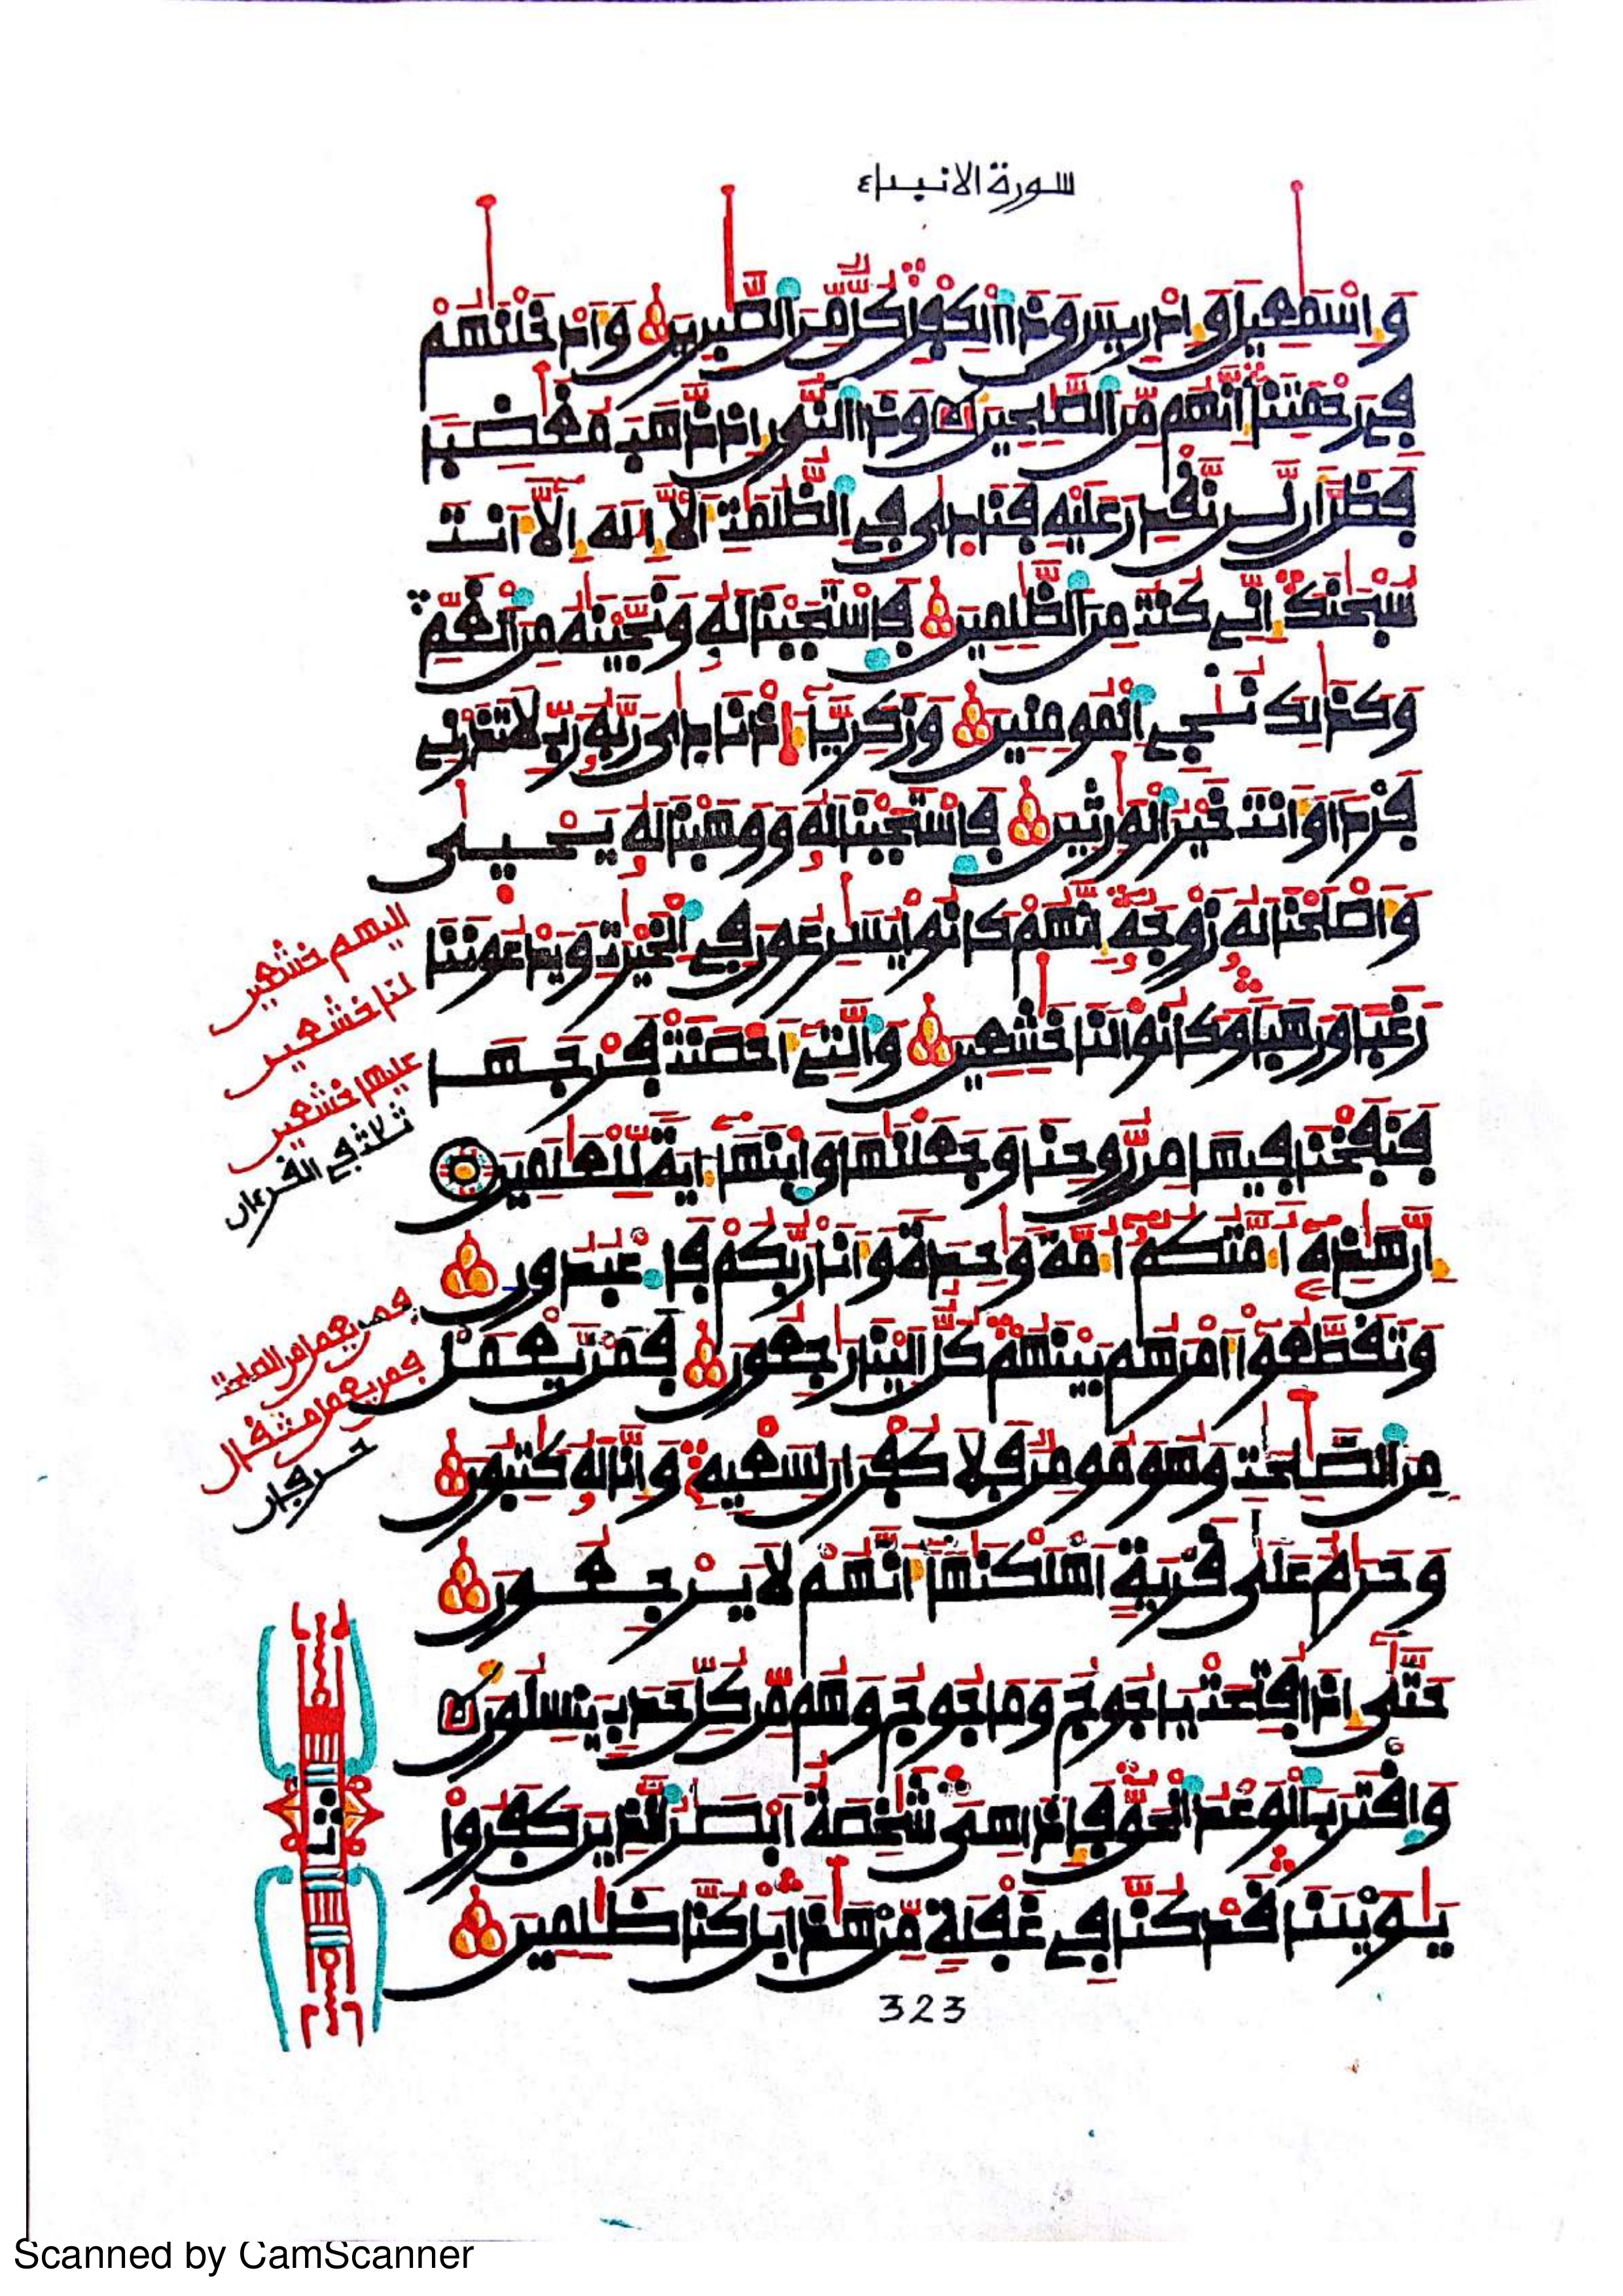 سورة الانبياء
وَإِسْمَٰعِيلَ وَإِدْرِيسَ وَذَا ٱلْكِفْلِ كُلٌّ مِّنَ ٱلصَّٰبِرِينَ وَأَدْخَلْنَٰهُمْ
فِے رَحْمَتِنَآ إِنَّهُم مِّنَ ٱلصَّٰلِحِينَ وَذَا ٱلنُّونِ إِذ ذَّهَبَ مُغَٰضِبًا
فَظَنَّ أَن لَّن نَّقْدِرَ عَلَيْهِ فَنَادَىٰ فِے ٱلظُّلُمَٰتِ أَن لَّآ إِلَٰهَ إِلَّآ أَنتَ
سُبْحَٰنَكَ إِنِّے كُنتُ مِنَ ٱلظَّٰلِمِينَ فَٱسْتَجَبْنَا لَهُۥ وَنَجَّيْنَٰهُ مِنَ ٱلْغَمِّ
وَكَذَٰلِكَ نُۨجِے ٱلْمُومِنِينَ وَزَكَرِيَّآءَ إِذْ نَادَىٰ رَبَّهُۥ رَبِّ لَا تَذَرْنِے
فَرْدًا وَأَنتَ خَيْرُ ٱلْوَٰرِثِينَ فَٱسْتَجَبْنَا لَهُۥ وَوَهَبْنَا لَهُۥ يَحْيَىٰ
وَأَصْلَحْنَا لَهُۥ زَوْجَهُۥٓ إِنَّهُمْ كَانُوا۟ يُسَٰرِعُونَ فِے ٱلْخَيْرَٰتِ وَيَدْعُونَنَا
رَغَبًا وَرَهَبًا وَكَانُوا۟ لَنَا خَٰشِعِينَ وَٱلَّتِےٓ أَحْصَنَتْ فَرْجَهَا
فَنَفَخْنَا فِيهَا مِن رُّوحِنَا وَجَعَلْنَٰهَا وَٱبْنَهَآ ءَايَةً لِّلْعَٰلَمِينَ
إِنَّ هَٰذِهِۦٓ أُمَّتُكُمُۥٓ أُمَّةً وَٰحِدَةً وَأَنَا رَبُّكُمْ فَٱعْبُدُونِ
وَتَقَطَّعُوٓا۟ أَمْرَهُم بَيْنَهُمْ كُلٌّ إِلَيْنَا رَٰجِعُونَ فَمَن يَّعْمَلْ
مِنَ ٱلصَّٰلِحَٰتِ وَهُوَ مُومِنٌ فَلَا كُفْرَانَ لِسَعْيِهِۦ وَإِنَّا لَهُۥ كَٰتِبُونَ
وَحَرَٰمٌ عَلَىٰ قَرْيَةٍ أَهْلَكْنَٰهَآ أَنَّهُمْ لَا يَرْجِعُونَ
حَتَّىٰٓ إِذَا فُتِحَتْ يَاجُوجُ وَمَاجُوجُ وَهُم مِّن كُلِّ حَدَبٍ يَنسِلُونَ
وَٱقْتَرَبَ ٱلْوَعْدُ ٱلْحَقُّ فَإِذَا هِىَ شَٰخِصَةٌ أَبْصَٰرُ ٱلَّذِينَ كَفَرُوا۟
يَٰوَيْلَنَا قَدْ كُنَّا فِے غَفْلَةٍ مِّنْ هَٰذَا بَلْ كُنَّا ظَٰلِمِينَ
اليهم خشعين
لنا خشعين
عليها خشعين
ثلاث في القرءان
فمن يعمل من الصلحت
فمن يعمل مثقال
حرفان
ثمن
323
Scanned by CamScanner